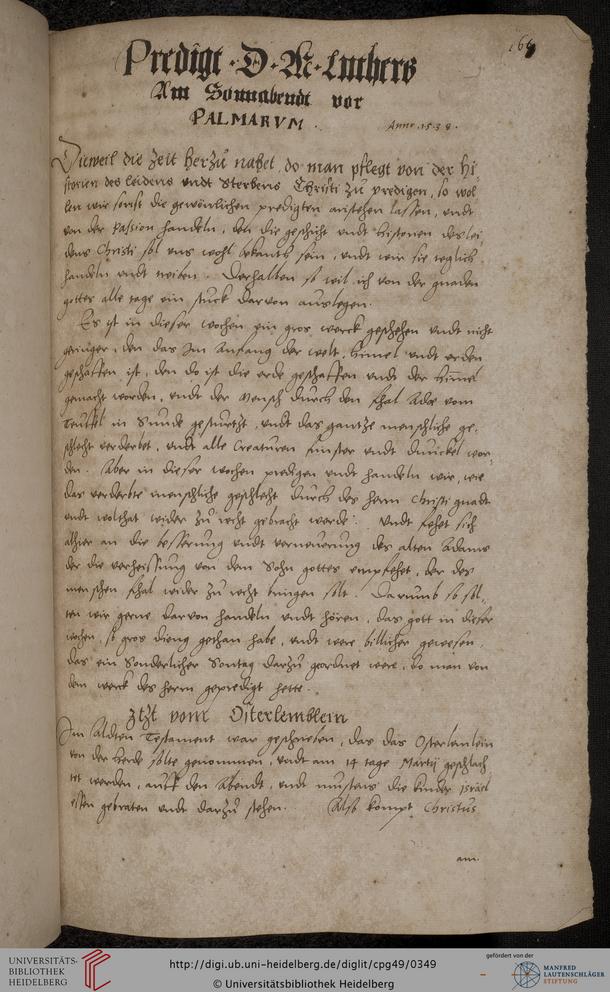 164
Predigt · D · M · Luthers
Am Sonnabendt vor
PALMARVM .
Anno . 1538 .
Dieweil die Zeit herzu nahet, do man pflegt von der Hi-
storien des leidens vndt Sterbens Christi zu predigen, so wol
len wir sonst die gewönlichen predigten anstehen lassen, vndt
von der Passion handeln, den die geschicht vndt Historien des lei,
dens Christi sol vns wohl bekandt sein, vndt wir sie teglich
handeln vndt treiben . Derhalben so wil ich von der gnaden
gottes alle tage ein stuck darvon auslegen .
Es ist in dieser wochen ein gros werck geschehen vndt nicht
geringer, den das Im Anfang der welt, himel vndt erden
geschaffen ist, den do ist die erde geschaffen vndt der himel
gemacht worden, vndt der Mensch durch den fhal Adae vom
Teuffel in Sunde gesturtzt, vndt das gantze menschliche ge,
schlecht verderbet, vndt alle Creaturen finster vndt dunckel wor-
den . Aber in dieser wochen predigen vndt handeln wir, wie
das verderbte menschliche geschlecht durch des herrn Christi gnadt
vndt wolthat wider zu recht gebracht werde . Vndt fehet sich
alhier an die besserung vndt verneuerung des alten Adams
der die verheissung von dem Sohn gottes empfehet, der des
menschen fhal wider zu recht bringen solt . Darumb so sol,
ten wir gerne darvon handeln vndt hören, das gott in dieser
wochen, so gros dieng gethan habe, vndt were billicher gewesen,
das ein Sonderlicher Sontag darzu geordnet were, do man von
dem werck des herrn gepredigt hette .
ztzt vom Osterlemblein
Im Aldten Testament war geschrieben, das das Osterlemlein
von der herde solte genommen, vndt am 14 tage Martij geschlach
tet werden, auff den Abendt, vndt mustens die kinder Israel
essen gebraten vndt darzu stehen . Also kompt Christus
am
UNIVERSITÄTS-
BIBLIOTHEK
HEIDELBERG
http://digi.ub.uni-heidelberg.de/diglit/cpg49/0349
© Universitätsbibliothek Heidelberg
gefördert von der
MANFRED
LAUTENSCHLÄGER
STIFTUNG